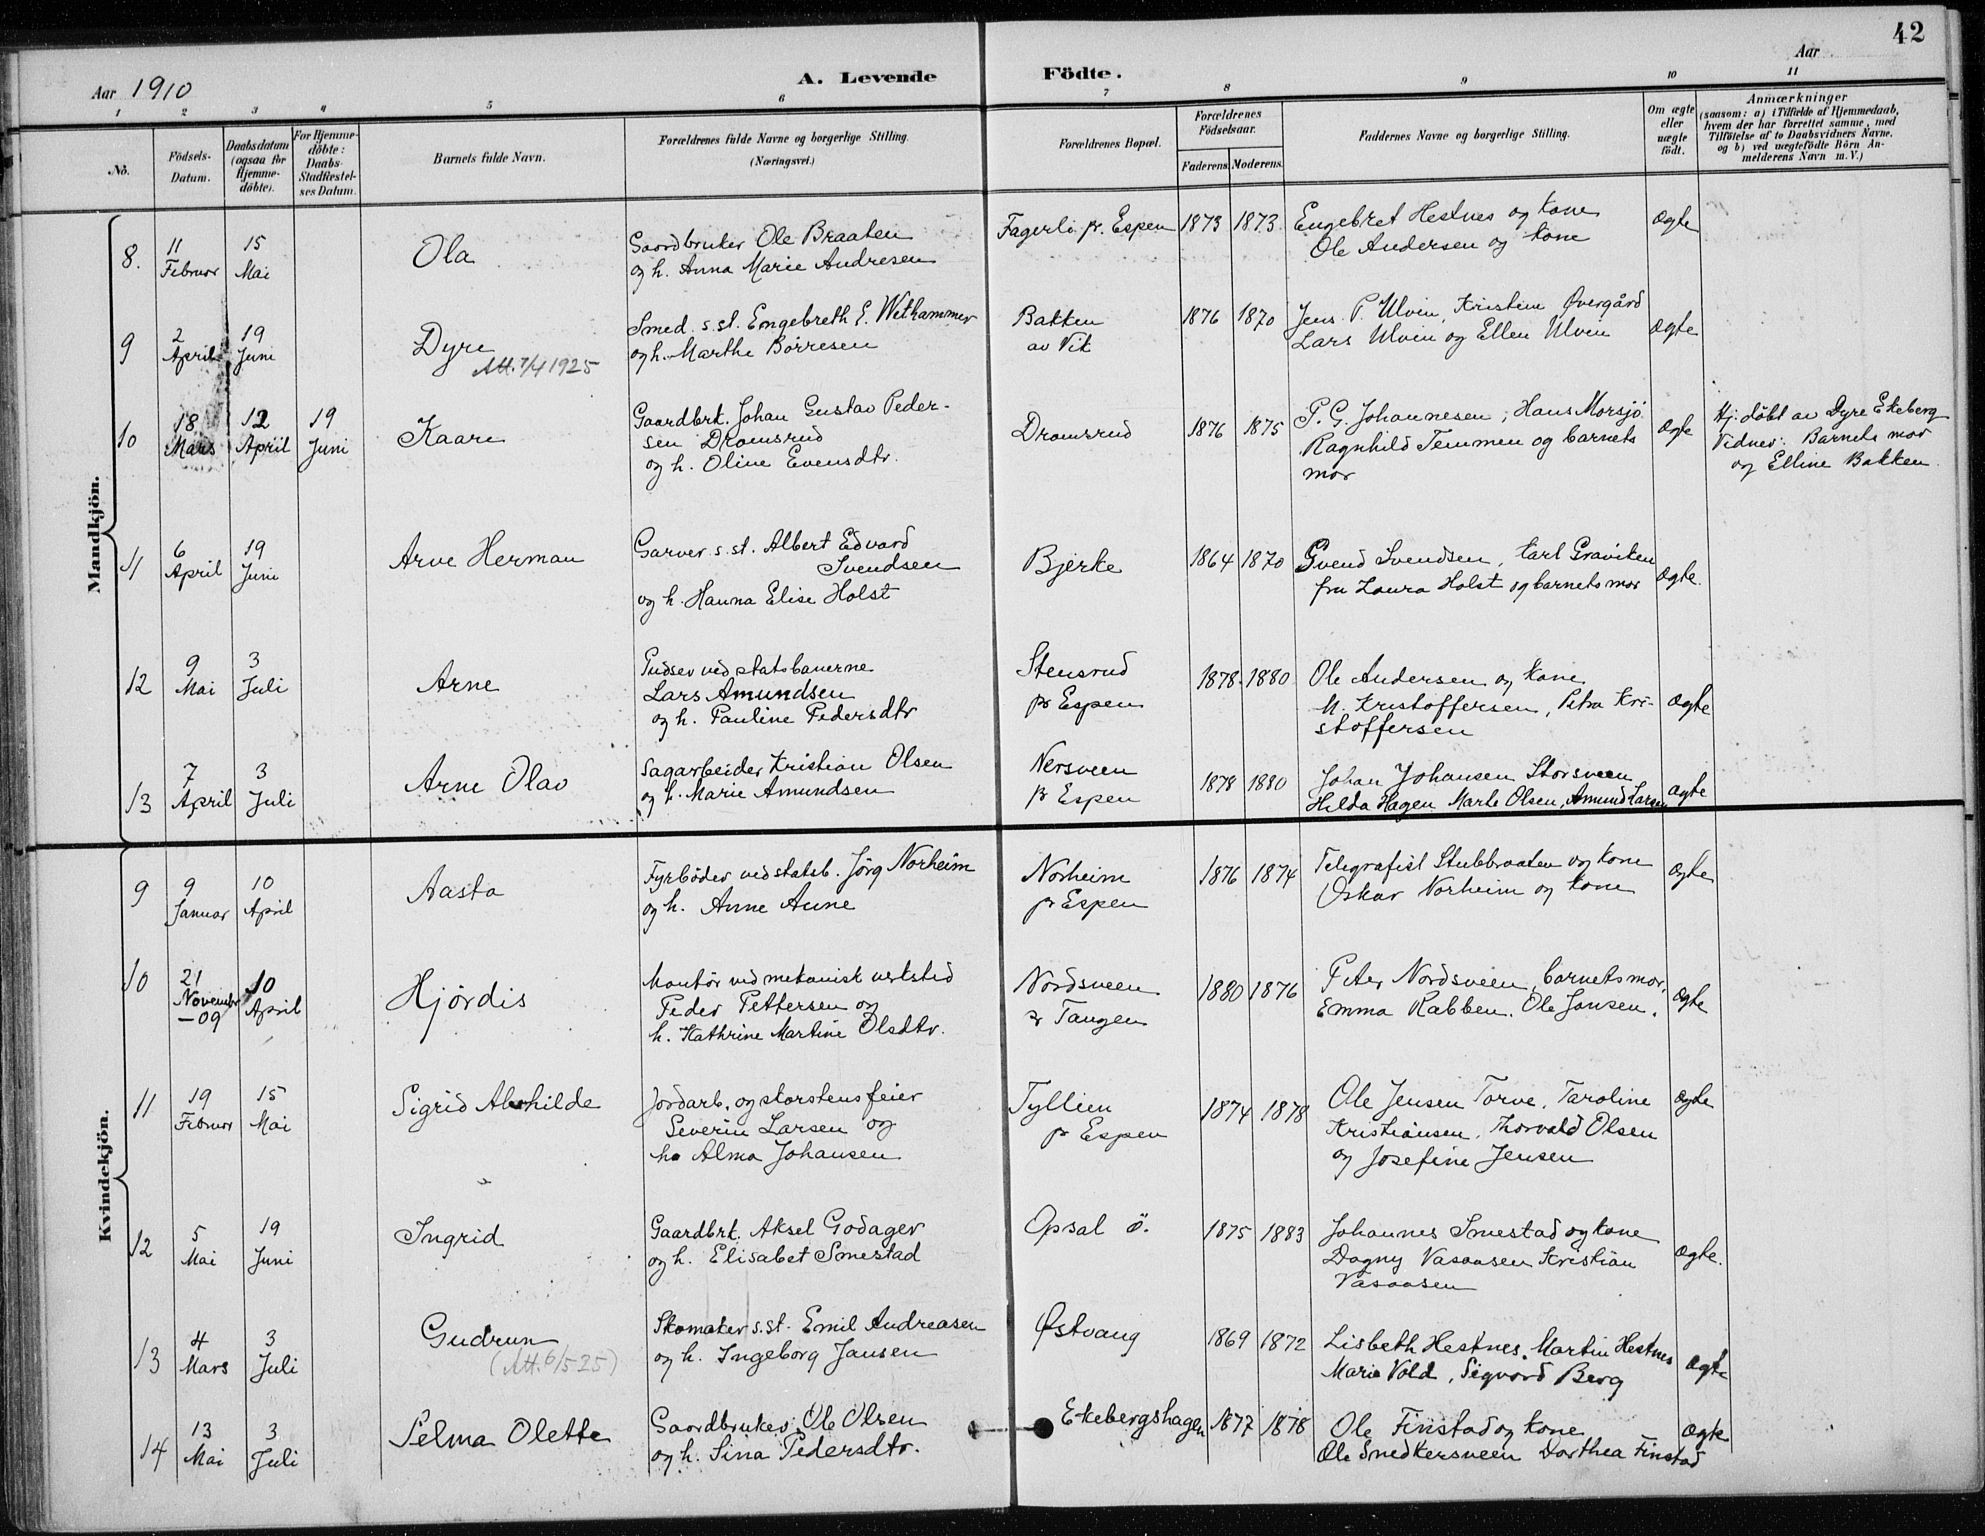 42
Aar 1910 A. Levende Födte. Aar
1 2 3 4 5 6 7 8 9 10 11
No.
Födsels-Datum.
Daabsdatum (ogsaa for Hjemme-döbte).
For Hjemme-döbte: Daabs-Stadfestel-ses Datum.
Barnets fulde Navn.
Forældrenes fulde Navne og borgerlige Stilling.
(Næringsvei.)
Forældrenes Bopæl.
Forældrenes Födselsaar.
Faderens. Moderens.
Faddernes Navne og borgerlige Stilling.
Om ægte eller uægte födt.
Anmærkninger
(saasom: a) i Tilfælde af Hjemmedaab,
hvem der har forrettet samme, med
Tilföielse af to Daabsvidners Navne,
og b) ved uægtefödte Börn An-
melderens Navn m. V.)
Mandkjön.
8. 11 Februar 15 Mai Ola
Gaardbruker Ole Braaten
og h. Anna Marie Andresen
Fagerli pr. Espen 1873 1873.
Engebret Hestnes og kone
Ole Andersen og kone
Ægte
9 2 April 19 Juni Dyre
Att. 7/4 1925
Smed s. st. Engebreth E. Wethammer
og h. Marthe Börresen
Bakken
av Vik
1876 1870
Jens P. Ulvin, Kristine Øvergård
Lars Ulvin og Ellen Ulven
Ægte
10 18 Mars 12 April 19 Juni Kaare
Gaardbrk. Johan Gustav Peder-
sen Dromsrud
og h. Oline Evensdtr.
Dromsrud 1876 1875
P. G. Johannesen, Hans Morsjö
Ragnhild Temmen og barnets
mor
Ægte
Hj. döbt av Dyre Ekeberg
Vidner: Barnets mor
og Elline Bakken.
11 6 April 19 Juni Arve Herman
Garver s. st. Albert Edvard
Svendsen
og h. Hanna Elise Holst
Bjerke 1864 1870
Svend Svendsen, Karl Graviken
fru Laura Holst og barnets mor
Ægte.
12 9 Mai 3 Juli Arne
Pudser ved statsbanerne
Lars Amundsen
og h. Pauline Pedersdtr
Stensrud
pr Espen
1878. 1880
Ole Andersen og kone
M. Kristoffersen, Petra Kri-
stoffersen
Ægte
13 7 April 3 Juli Arne Olav
Sagarbeider Kristian Olsen
og h. Marie Amundsen
Nersveen
pr Espen
1878 1880
Johan Johansen Storsveen
Hilda Hagen Marte Olsen, Amund Larsen
Ægte
Kvindekjön.
9 9 Januar 10 April Aasta
Fyrböder ved statsb. Jörg Norheim
og h. Anne Aune
Norheim
pr Espen
1876 1874
Telegrafist Stubbraaten og kone
Oskar Norheim og kone
Ægte
10 21 Novembr -09 10 April Hjördis
Montör ved mekanisk verksted
Peder Pettersen og
h. Kathrine Martine Olsdtr.
Nordsveen
pr Tangen
1880 1876
Peter Nordsveen, barnets mor,
Emma Rabben, Ole Jansen.
Ægte
11 19 Februar 15 Mai Sigrid Alvhilde
Jordarb. og skorstensfeier
Severin Larsen og
h. Alma Johansen
Tyllien
pr Espen
1874 1878
Ole Jensen Torve, Taroline
Kristiansen, Thorvald Olsen
og Josefine Jensen
Ægte
12 5 Mai 19 Juni Ingrid
Gaardbrk. Aksel Godager
og h. Elisabet Smestad
Opsal ö. 1875 1883
Johannes Smestad og kone
Dagny Vasaasen Kristian
Vasaasen
Ægte.
13 4 Mars 3 Juli Gudrun
(Att. 6/5 25)
Skomaker s. st. Emil Andreasen
og h. Ingeborg Jansen
Østvang 1869 1872
Lisbeth Hestnes, Martin Hestnes
Marie Vold, Sigvord Berg
Ægte
14 13 Mai 3 Juli Selma Olette
Gaardbruker Ole Olsen
og h. Sina Pedersdtr.
Ekebergshagen 1877 1878
Ole Finstad og kone
Ole Smedkersveen Dorthea Finstad
Ægte